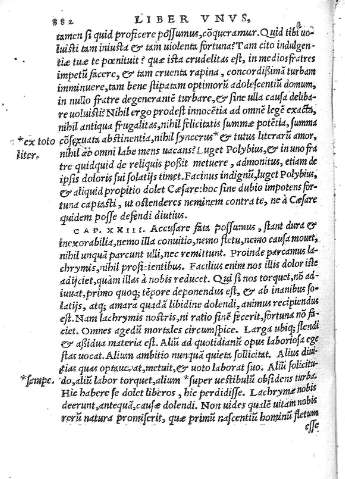 882 LIBER VNVS,
tamen si quid proficere possumus, cõqueramur. Quid tibi uo-
luisti tam iniusta & tam uiolenta fortuna? Tam cito indulgen-
tiæ tuæ te pœnituit? quæ ista crudelitas est, in medios fratres
impetũ facere, & tam cruenta rapina, concordissimã turbam
imminuere, tam bene stipatam optimorũ adolescentiũ domum,
in nullo fratre degenerantẽ turbare, & sine ulla causa deliba-
re uoluisti? Nihil ergo prodest innocẽtia ad omnẽ legẽ exacta,
nihil antiqua frugalitas, nihil felicitatis summæ potẽtia, summa
*ex toto cõseruata abstinentia, nihil syncerus* & tutus literarũ amor,
liter. nihil ab omni labe mens uacans? Luget Polybius, & in uno fra
tre quidquid de reliquis possit metuere, admonitus, etiam de
ipsis doloris sui solatijs timet. Facinus indignũ, luget Polybius,
& aliquid propitio dolet Cæsare: hoc sine dubio impotens for-
tuna captasti, ut ostenderes neminem contra te, ne à Cæsare
quidem posse defendi diutius.
CAP. XXIII. Accusare fata possumus, stant dura &
inexorabilia, nemo illa conuitio, nemo fletu, nemo causa mouet,
nihil unquã parcunt ulli, nec remittunt. Proinde parcamus la-
chrymis, nihil proficientibus. Facilius enim nos illis dolor iste
adijciet, quàm illas à nobis reducet. Qui si nos torquet, nõ ad-
iuuat, primo quoq; tẽpore deponendus est, & ab inanibus so-
latijs, atq; amara quadã libidine dolendi, animus recipiendus
est. Nam lachrymis nostris, ni ratio finẽ fecerit, fortuna nõ fa-
ciet. Omnes agedũ mortales circumspice. Larga ubiq; flendi
& aßidua materia est. Aliũ ad quotidianũ opus laboriosa ege
stas uocat. Alium ambitio nunquã quieta sollicitat. Alius diui-
tias quas optauerat, metuit, & uoto laborat suo. Aliũ solicitu-
*sæpe. do, aliũ labor torquet, alium *super uestibulũ obsidens turba.
Hic habere se dolet liberos, hic perdidisse. Lachrymæ nobis
deerunt, anteq̃uã, causæ dolendi. Non uides qualẽ uitam nobis
rerũ natura promiserit, quæ primũ nascentiũ hominũ fletum
esse